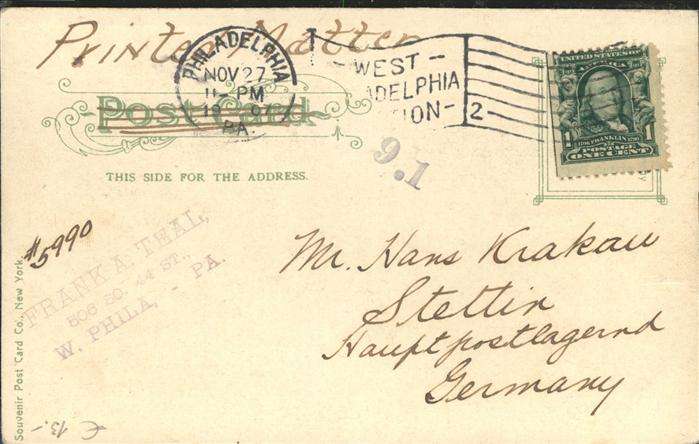 Printed Matter
PHILADELPHIA
NOV 27
11 - PM
1907
PA.
WEST
ADELPHIA
ION
2
UNITED STATES OF
AMERICA
1 FRANKLIN 1
POSTAGE
ONE CENT
Post Card
THIS SIDE FOR THE ADDRESS.
9.1
#5990
FRANK A. TEAL,
506 SO. 44 ST.,
W. PHILA, - PA.
Mr. Hans Krakau
Stettin
Hauptpostlagernd
Germany
Souvenir Post Card Co., New York.
€ 13.-